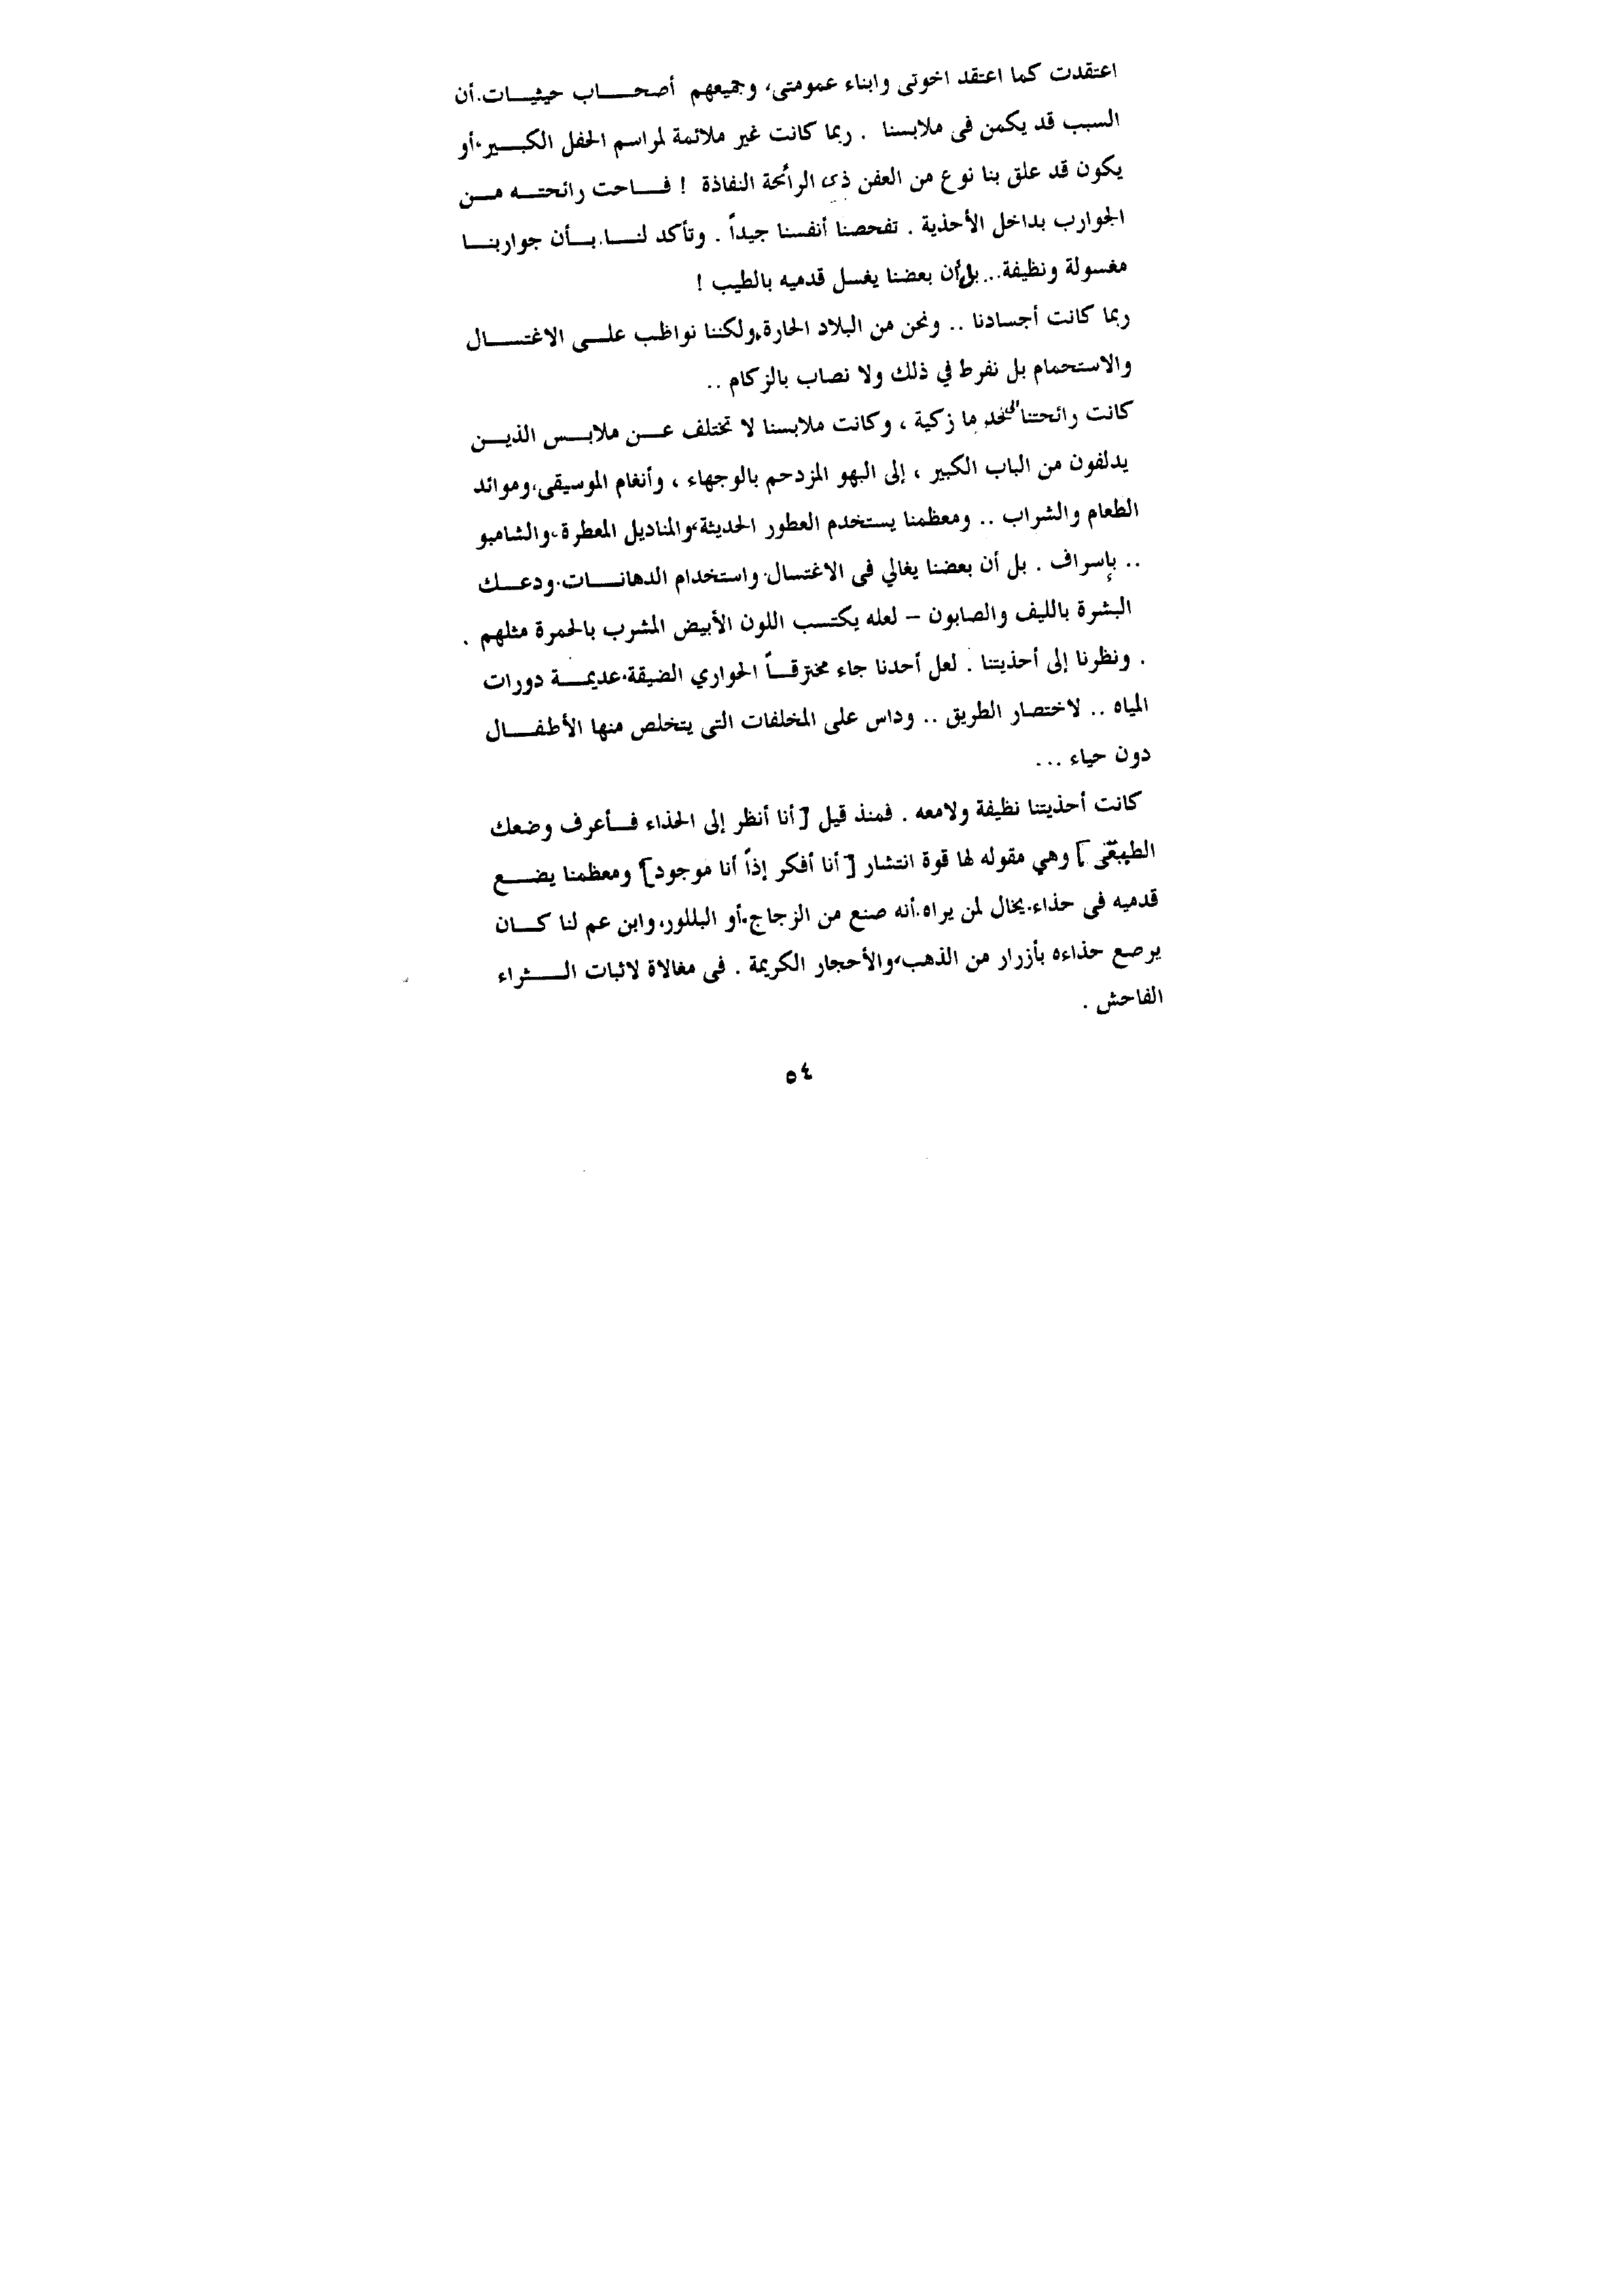 اعتقدت كما اعتقد اخوتى وابناء عمومتى، وجميعهم أصحاب حيثيات، أن
السبب قد يكمن فى ملابسنا . ربما كانت غير ملائمة لمراسم الحفل الكبير، أو
يكون قد علق بنا نوع من العفن ذى الرائحة النفاذة ! فاحت رائحته من
الجوارب بداخل الأحذية . تفحصنا أنفسنا جيداً . وتأكد لنا بأن جواربنا
مغسولة ونظيفة .. بل أن بعضنا يغسل قدميه بالطيب !
ربما كانت أجسادنا .. ونحن من البلاد الحارة، ولكننا نواظب على الاغتسال
والاستحمام بل نفرط في ذلك ولا نصاب بالزكام ..
كانت رائحتنا ما زكية ، وكانت ملابسنا لا تختلف عن ملابس الذين
يدلفون من الباب الكبير ، إلى البهو المزدحم بالوجهاء ، وأنغام الموسيقى، وموائد
الطعام والشراب .. ومعظمنا يستخدم العطور الحديثة، والمناديل المعطرة، والشامبو
.. بإسراف . بل أن بعضنا يغالي فى الاغتسال، واستخدام الدهانات، ودعك
البشرة بالليف والصابون – لعله يكتسب اللون الأبيض المشرب بالحمرة مثلهم .
. ونظرنا إلى أحذيتنا . لعل أحدنا جاء مخترقاً الحواري الضيقة، عديمة دورات
المياه .. لاختصار الطريق .. وداس على المخلفات التى يتخلص منها الأطفال
دون حياء ...
كانت أحذيتنا نظيفة ولامعه . فمنذ قيل [ أنا أنظر إلى الحذاء فأعرف وضعك
] وهي مقوله لها قوة انتشار [ أنا أفكر إذاً أنا موجود] ومعظمنا يضع
قدميه فى حذاء، يخال لمن يراه، أنه صنع من الزجاج، أو البللور، وابن عم لنا كان
يرصع حذاءه بأزرار من الذهب، والأحجار الكريمة . فى مغالاة لاثبات الثراء
الفاحش .
٥٤